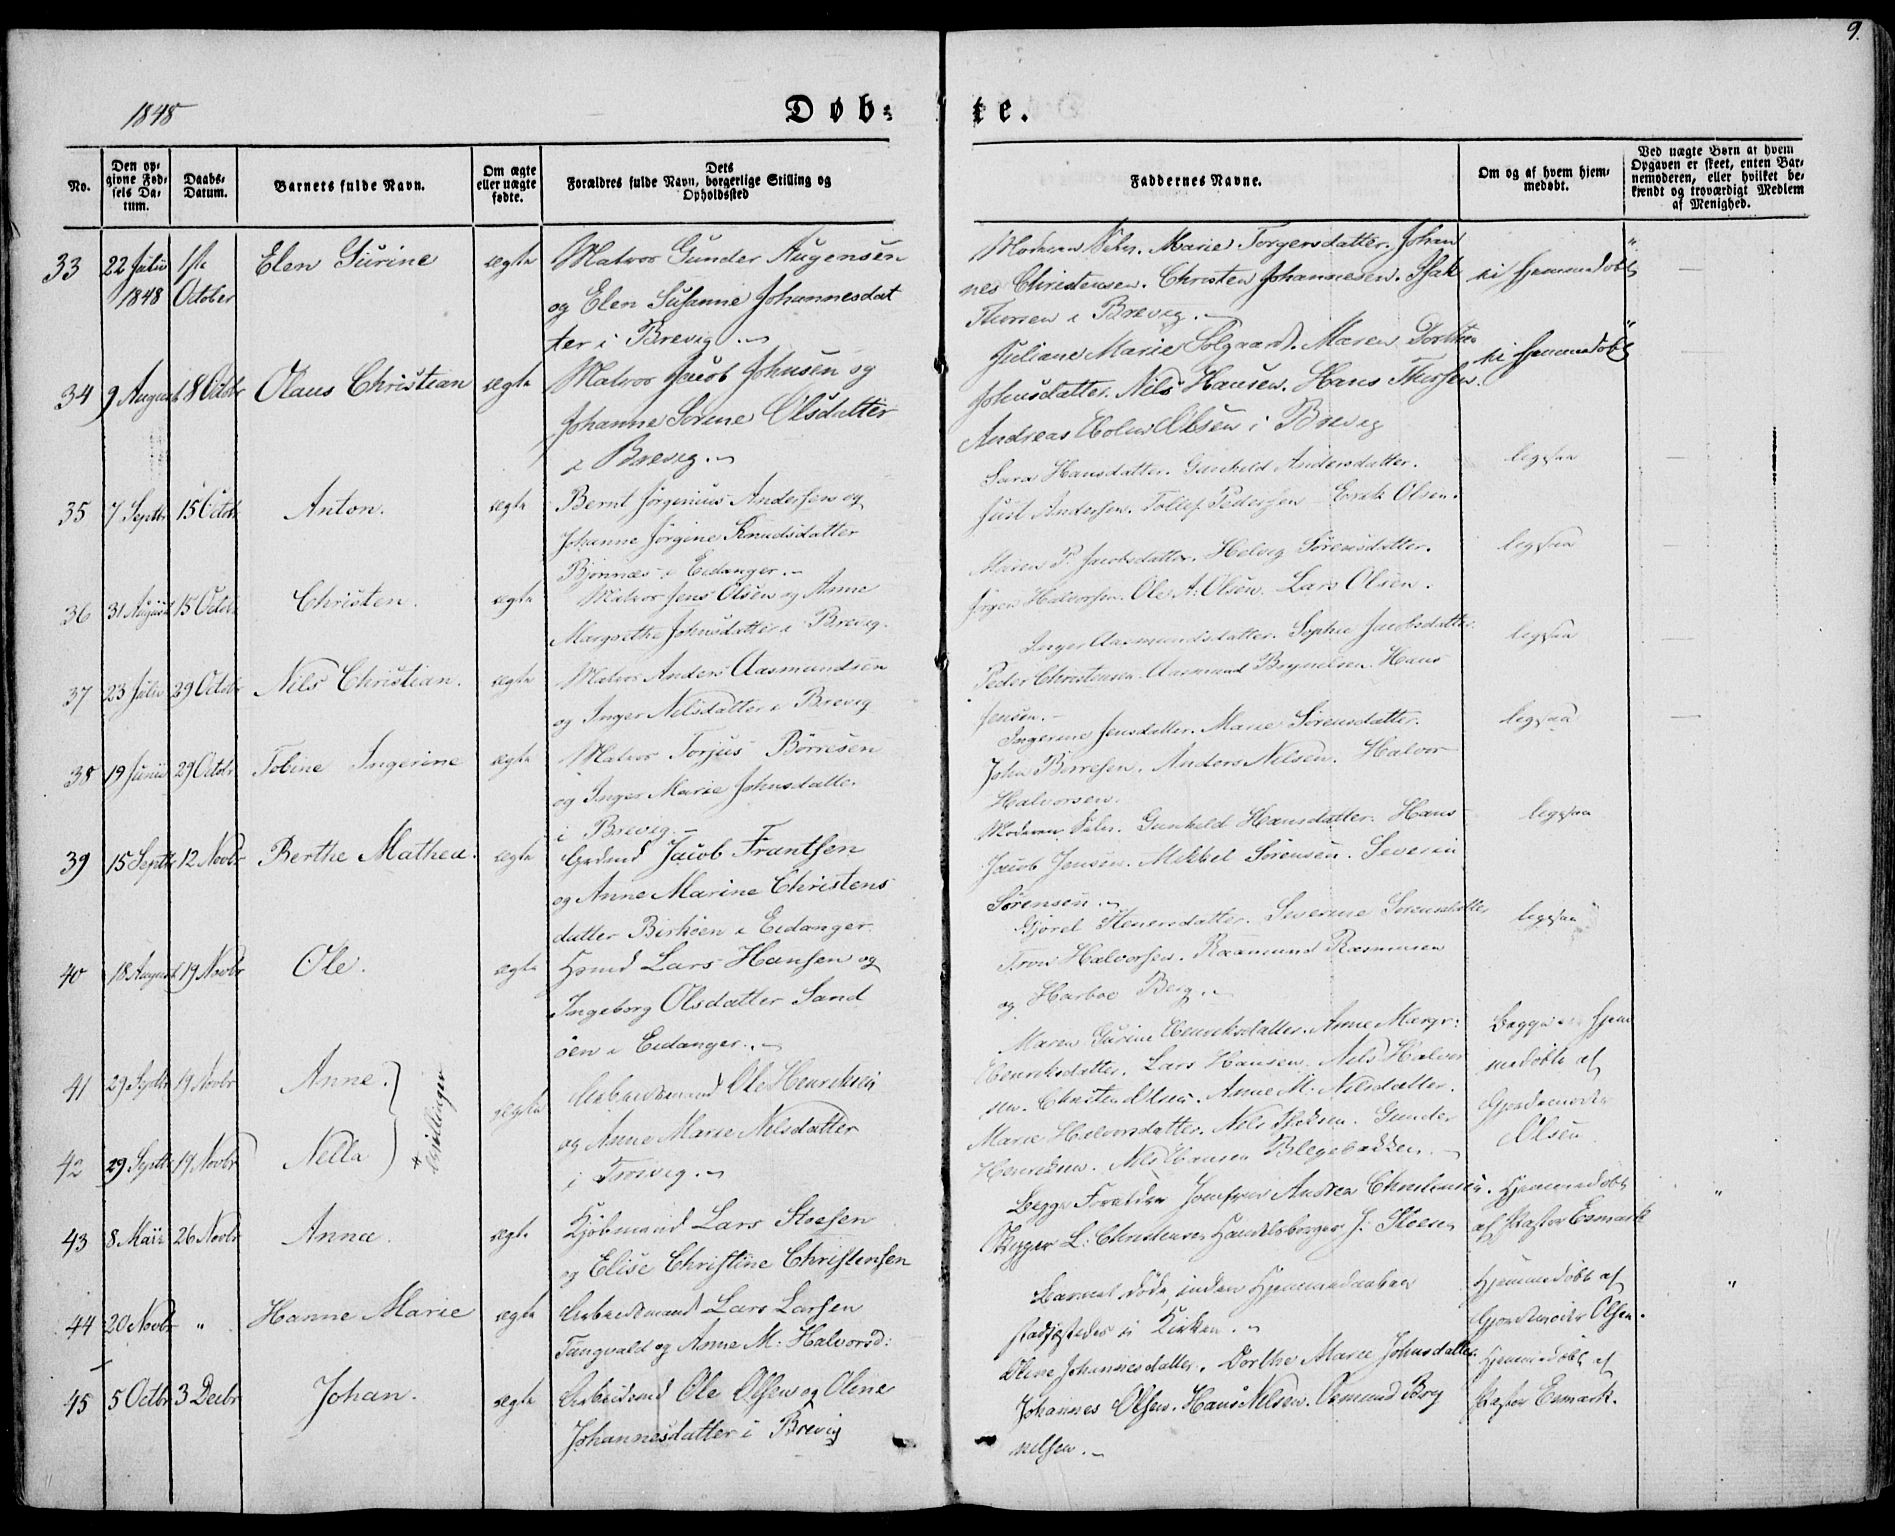 9.
1848
Døb= te.
No.
Den op=
givne Fød=
sels Da=
tum.
Daabs=
Datum.
Barnets fulde Navn.
Om ægte
eller uægte
fødte.
Dets
Forældres fulde Navn, borgerlige Stilling og
Opholdssted
Faddernes Navne.
Om og af hvem hjem=
medøbt.
Ved uægte Børn af hvem
Opgaven er skeet, enten Bar=
nemoderen, eller hvilket be=
kjendt og troværdigt Medlem
af Menighed.
33 22 Julii 1848 1ste October Elen Gurine ægte
Matros Gunder Augensen
og Elen Susanne Johannesdat
ter i Brevig.
Moderen Selv. Marie Torgersdatter. Johan
nes Christensen. Christen Johannesen. Isak
Thorsen i Brevig.
ei hjemmedøbt
34 9 August 8 Octbr Olaus Christian ægte
Matros Jacob Johnsen og
Johanne Sorine Olsdatter
i Brevig.
Juliane Marie Solgaard. Maren Dorthea
Johnsdatter. Nils Hansen. Hans Thorsen.
Andreas Holm Olsen i Brevig
ei hjemmedøbt
35 7 Septbr 15 Octob Anton. ægte
Bernt Jørginius Andersen og
Johanne Jørgine Knudsdatter
Bjønnæs i Eidanger.
Sara Hansdatter. Gunhild Andersdatter.
Just Andersen. Tollef Pedersen Erik Olsen.
legesaa
36 31 August 15 Octob Christen. ægte
Matros Jens Olsen og Anne
Margrethe Johnsdatter i Brevig.
Maren P. Jacobsdatter. Helvig Sørensdatter.
Jørgen Halvorsen. Ole A. Olsen. Lars Olsen.
legesaa
37 23 Julii 29 Octobr Nils Christian. ægte
Matros Anders Aasmundsen
og Inger Nilsdatter i Brevig
Inger Aasmundsdatter. Sophie Jacobsdatter
Peder Christensen Aasmund Brynelsen Hans
Jensen.
legesaa
38 19 Junii 29 Octobr Tobine Ingerine ægte
Matros Torjus Børresen
og Inger Marie Johnsdatter
i Brevig.
Ingerine Jensdatter. Marie Sørensdatter.
John Børresen. Anders Nilsen. Halvor
Halvorsen.
legesaa
39 15 Septb 12 Novbr Berthe Mathea. ægte
Grdmd Jacob Frantsen
og Anne Marine Christens
datter Birkøen i Eidanger.
Moderen Selv. Gunhild Hansdatter. Hans
Jacob Jensen. Mikkel Sørensen. Severin
Sørensen.
legesaa
40 18 August 19 Novbr Ole. ægte
Hsmd Lars Hansen og
Ingeborg Olsdatter Sand
øen i Eidanger.
Severine Sørensdatter
Halvorsen. Rasmussen
og Harboe Berg.
legesaa
41 29 Septbr 19 Novbr Anne.
42 29 Septb 19 Novbr Nella
* Tvillinger
ægte
Arbeidsmand Ole Henriksen
og Anne Marie Nilsdatter
i Trosvig.
Maren Gurine Henriksdatter. Anne Margr:
Henriksdatter. Lars Hansen. Nils Halvor
sen. Christen Olsen. Anne M. Nilsdatter.
Marie Halvorsdatter. Nils Gunder
Henriksen. Nils Hansen Blegebakken.
Begge hjem
medøbte af
Gjordemoder
Olsen.
43 8 Mai 26 Novbr Anna. ægte
Kjøbmand Lars Stoesen
og Elise Christine Christensen
Begge Forældre Jomfrue Andrea Christensen.
L. Christensen Handelsborger J. Stoesen
Hjemmedøbt
af Pastor Esmark
"
44 20 Novbr " Hanne Marie ægte
Arbeidsmand Lars Larsen
Tangvald og Anne M. Halvorsd:
Barnet døde, inden Hjemmedaaben
stadfæstedes i Kirken.
Hjemmedøbt af
Gjordemoder Olsen.
"
45 5 Octbr 3 Decbr Johan. ægte
Arbeidsmd Ole Olsen og Oline
Johannesdatter i Brevig
Oline Johannesdatter. Dorthe Marie Johnsdatter
Johannes Olsen. Hans Nilsen. Osmund Bry
nelsen.
Hjemmedøbt af
Pastor Esmark.